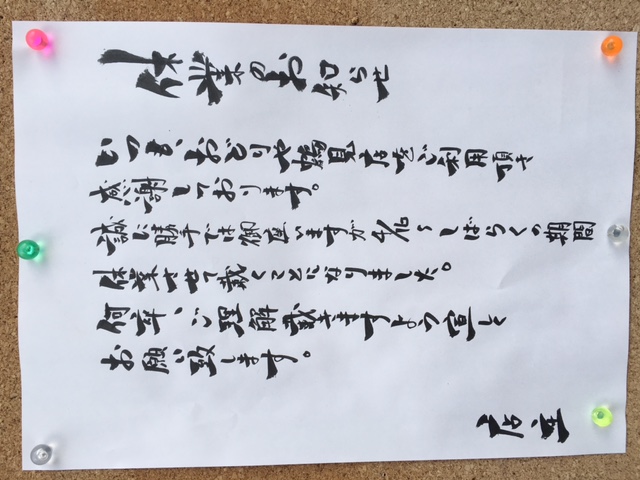 休業のお知らせ
いつも、おどりや鶴見店をご利用頂き
感謝しております。
誠に勝手では御座いますが4/6〜しばらくの期間
休業させて戴くことになりました。
何卒、ご理解戴きますよう宜しく
お願い致します。
店主